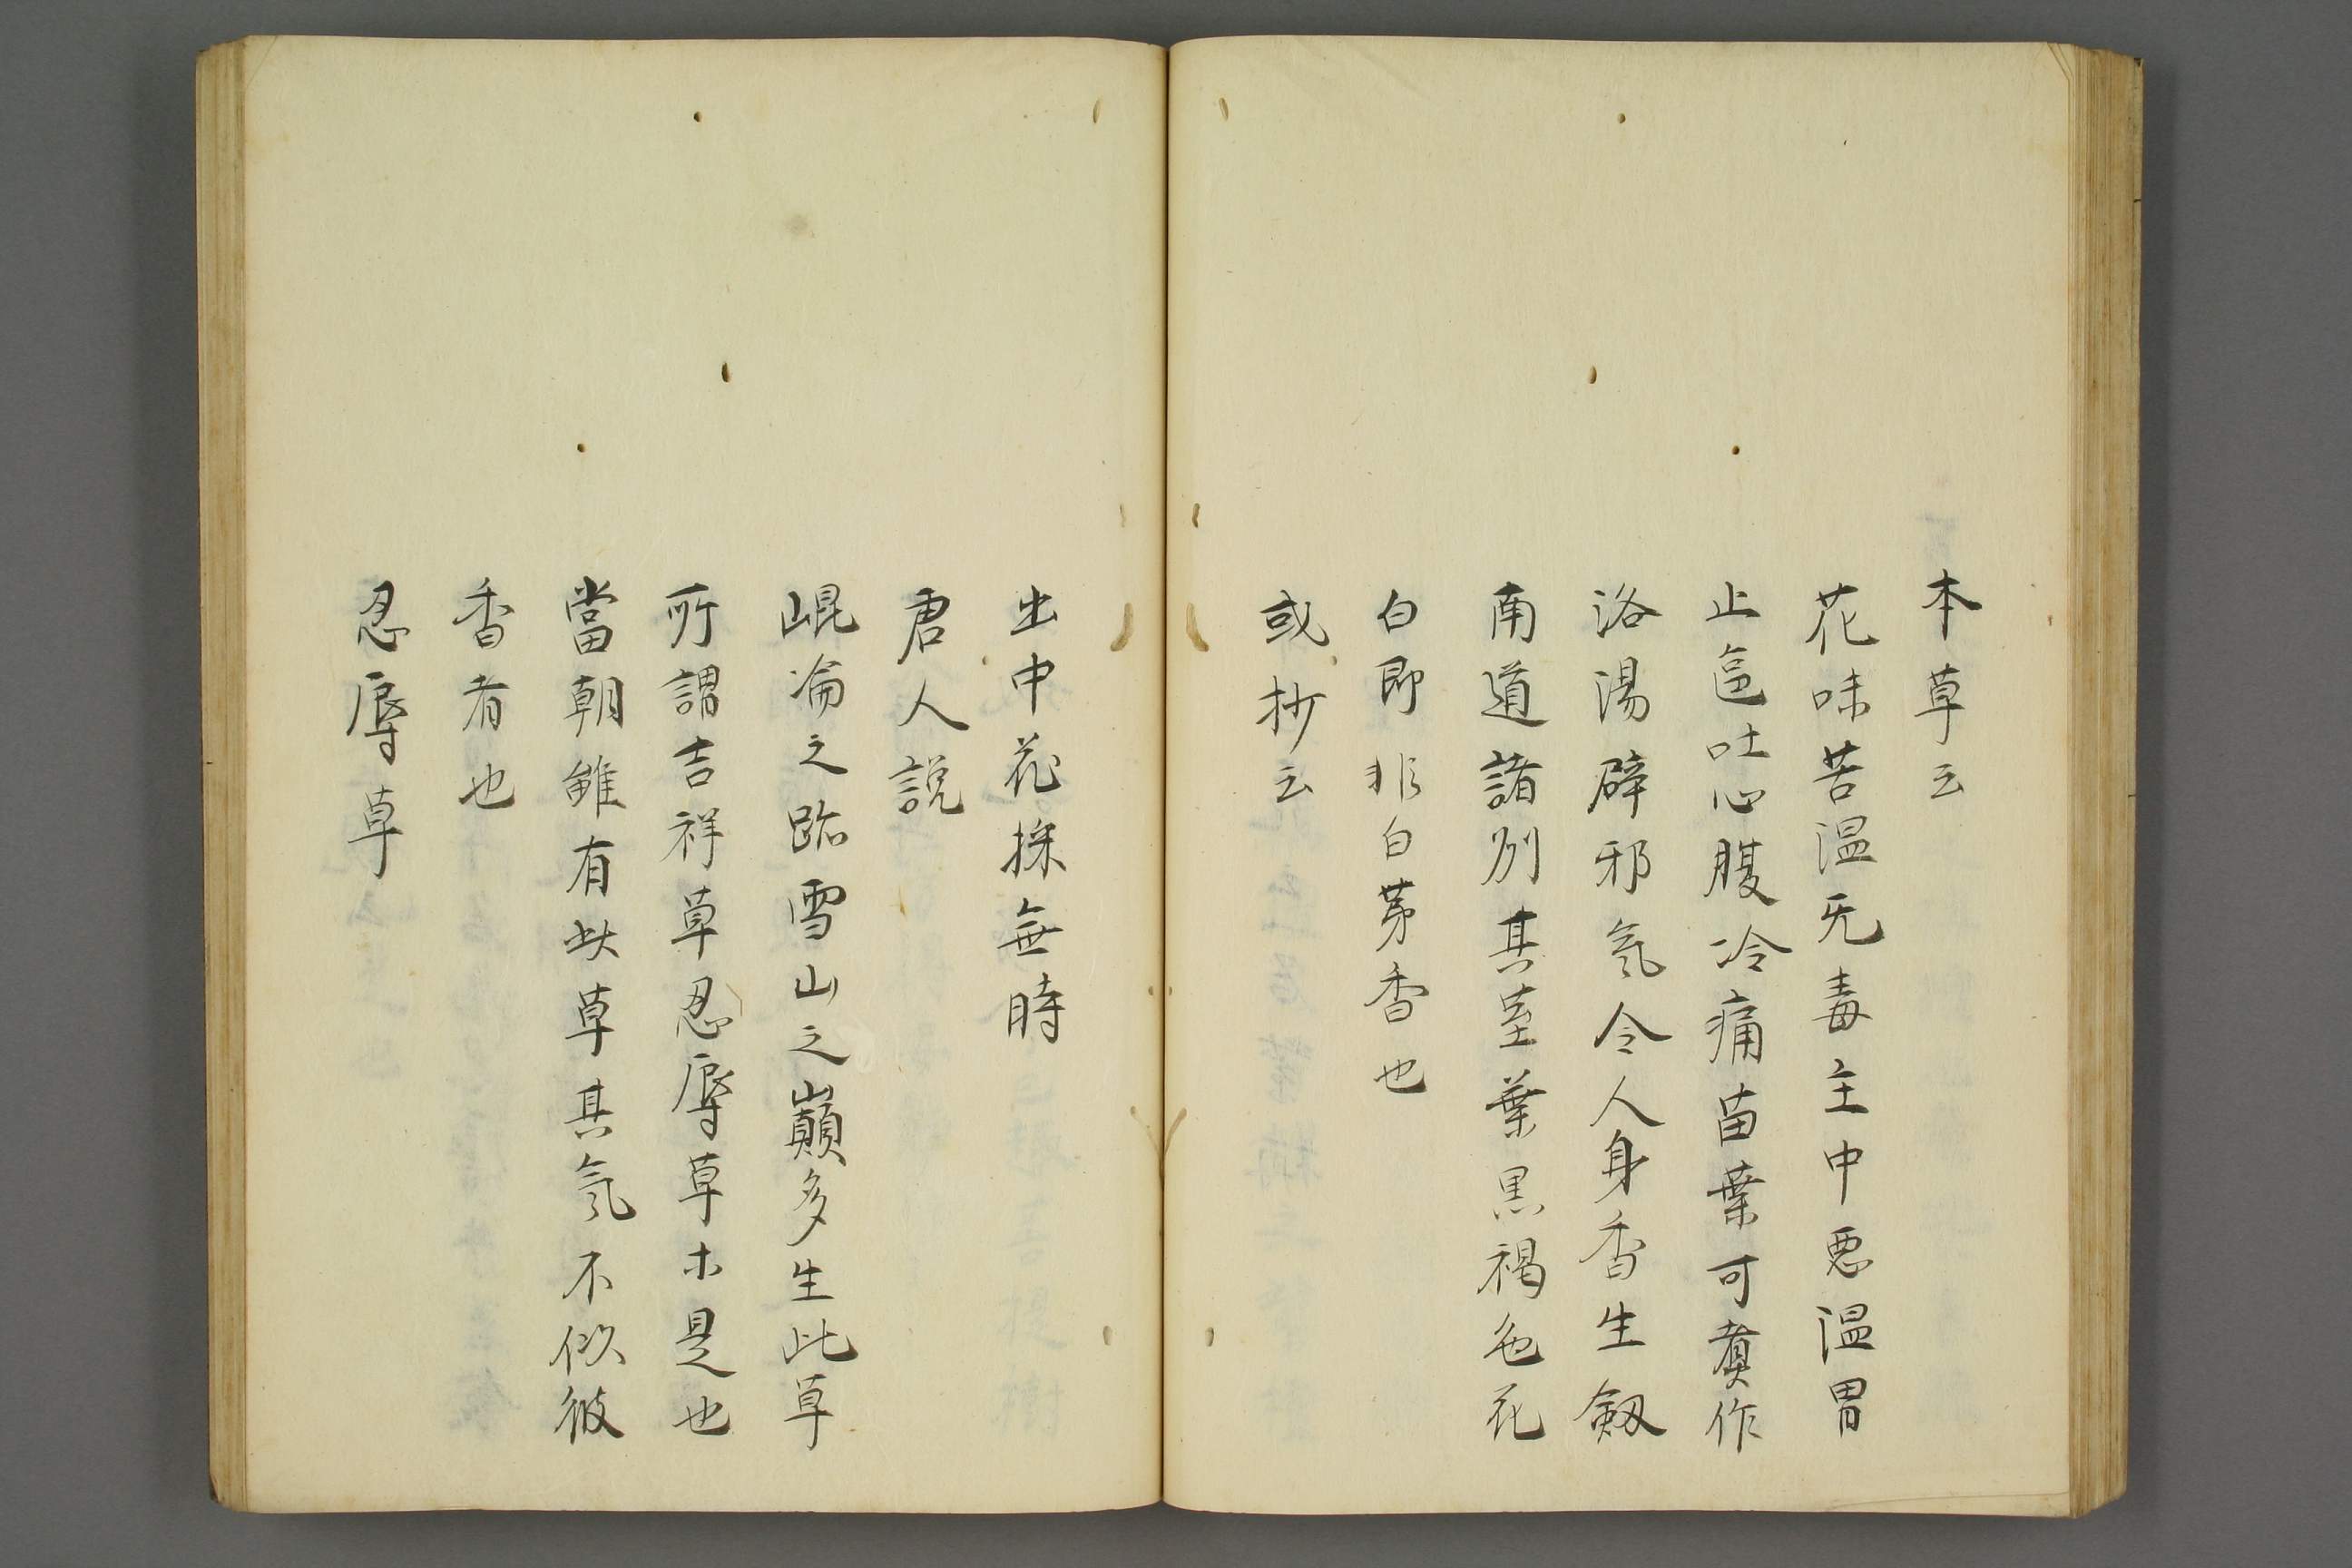 本草云
花味苦温无毒主中悪温胃
止逼吐心腹冷痛苗葉可煑作
洛湯辟邪氣令人身香生剱
南道諸列其莖葉黒褐色花
白即非白茅香也
或抄云
出中花採無時
唐人説
崐崘之臨雪山之巓多生此草
所謂吉祥草忍辱草木是也
當朝雖有此草其氣不似彼
香者也
忍辱草